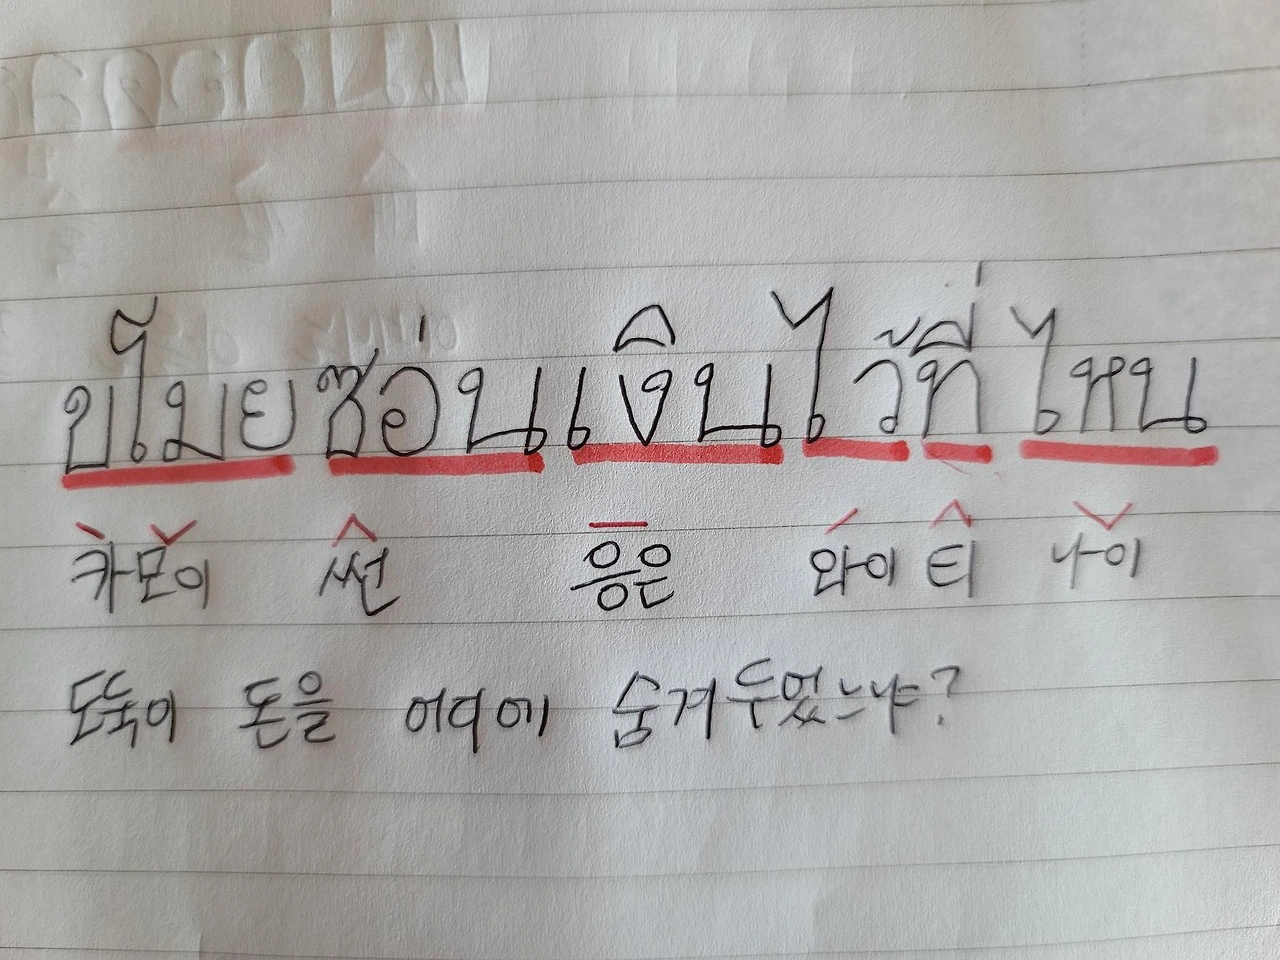 ขโมยซ่อนเงินไว้ที่ไหน
카모이 썬 응은 와이 티 나이
도둑이 돈을 어디에 숨겨두었느냐?